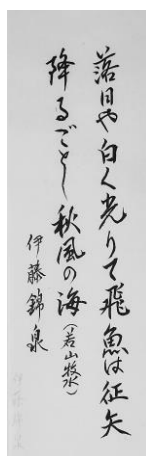 落日や白く光りて飛魚は征矢
降るごとし秋風の海（若山牧水）
伊藤錦泉